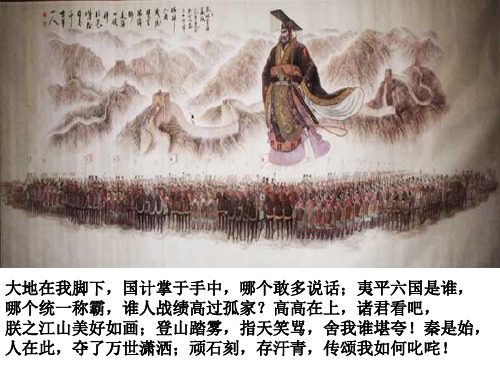 大地在我脚下，国计掌于手中，哪个敢多说话；夷平六国是谁，
哪个统一称霸，谁人战绩高过孤家？高高在上，诸君看吧，
朕之江山美好如画；登山踏雾，指天笑骂，舍我谁堪夸！秦是始，
人在此，夺了万世潇洒；顽石刻，存汗青，传颂我如何叱咤！